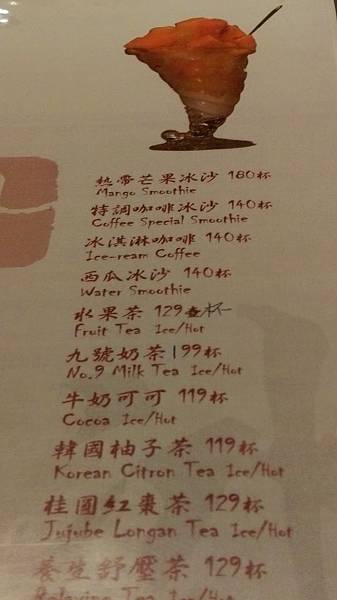 熱帶芒果冰沙 180杯
Mango Smoothie
特調咖啡冰沙 140杯
Coffee Special Smoothie
冰淇淋咖啡 140杯
Ice-ream Coffee
西瓜冰沙 140杯
Water Smoothie
水果茶 129壺杯
Fruit Tea Ice/Hot
九號奶茶 199杯
No.9 Milk Tea Ice/Hot
牛奶可可 119杯
Cocoa Ice/Hot
韓國柚子茶 119杯
Korean Citron Tea Ice/Hot
桂圓紅棗茶 129杯
Jujube Longan Tea Ice/Hot
養生舒壓茶 129杯
Relaxing Tea Ice/Hot